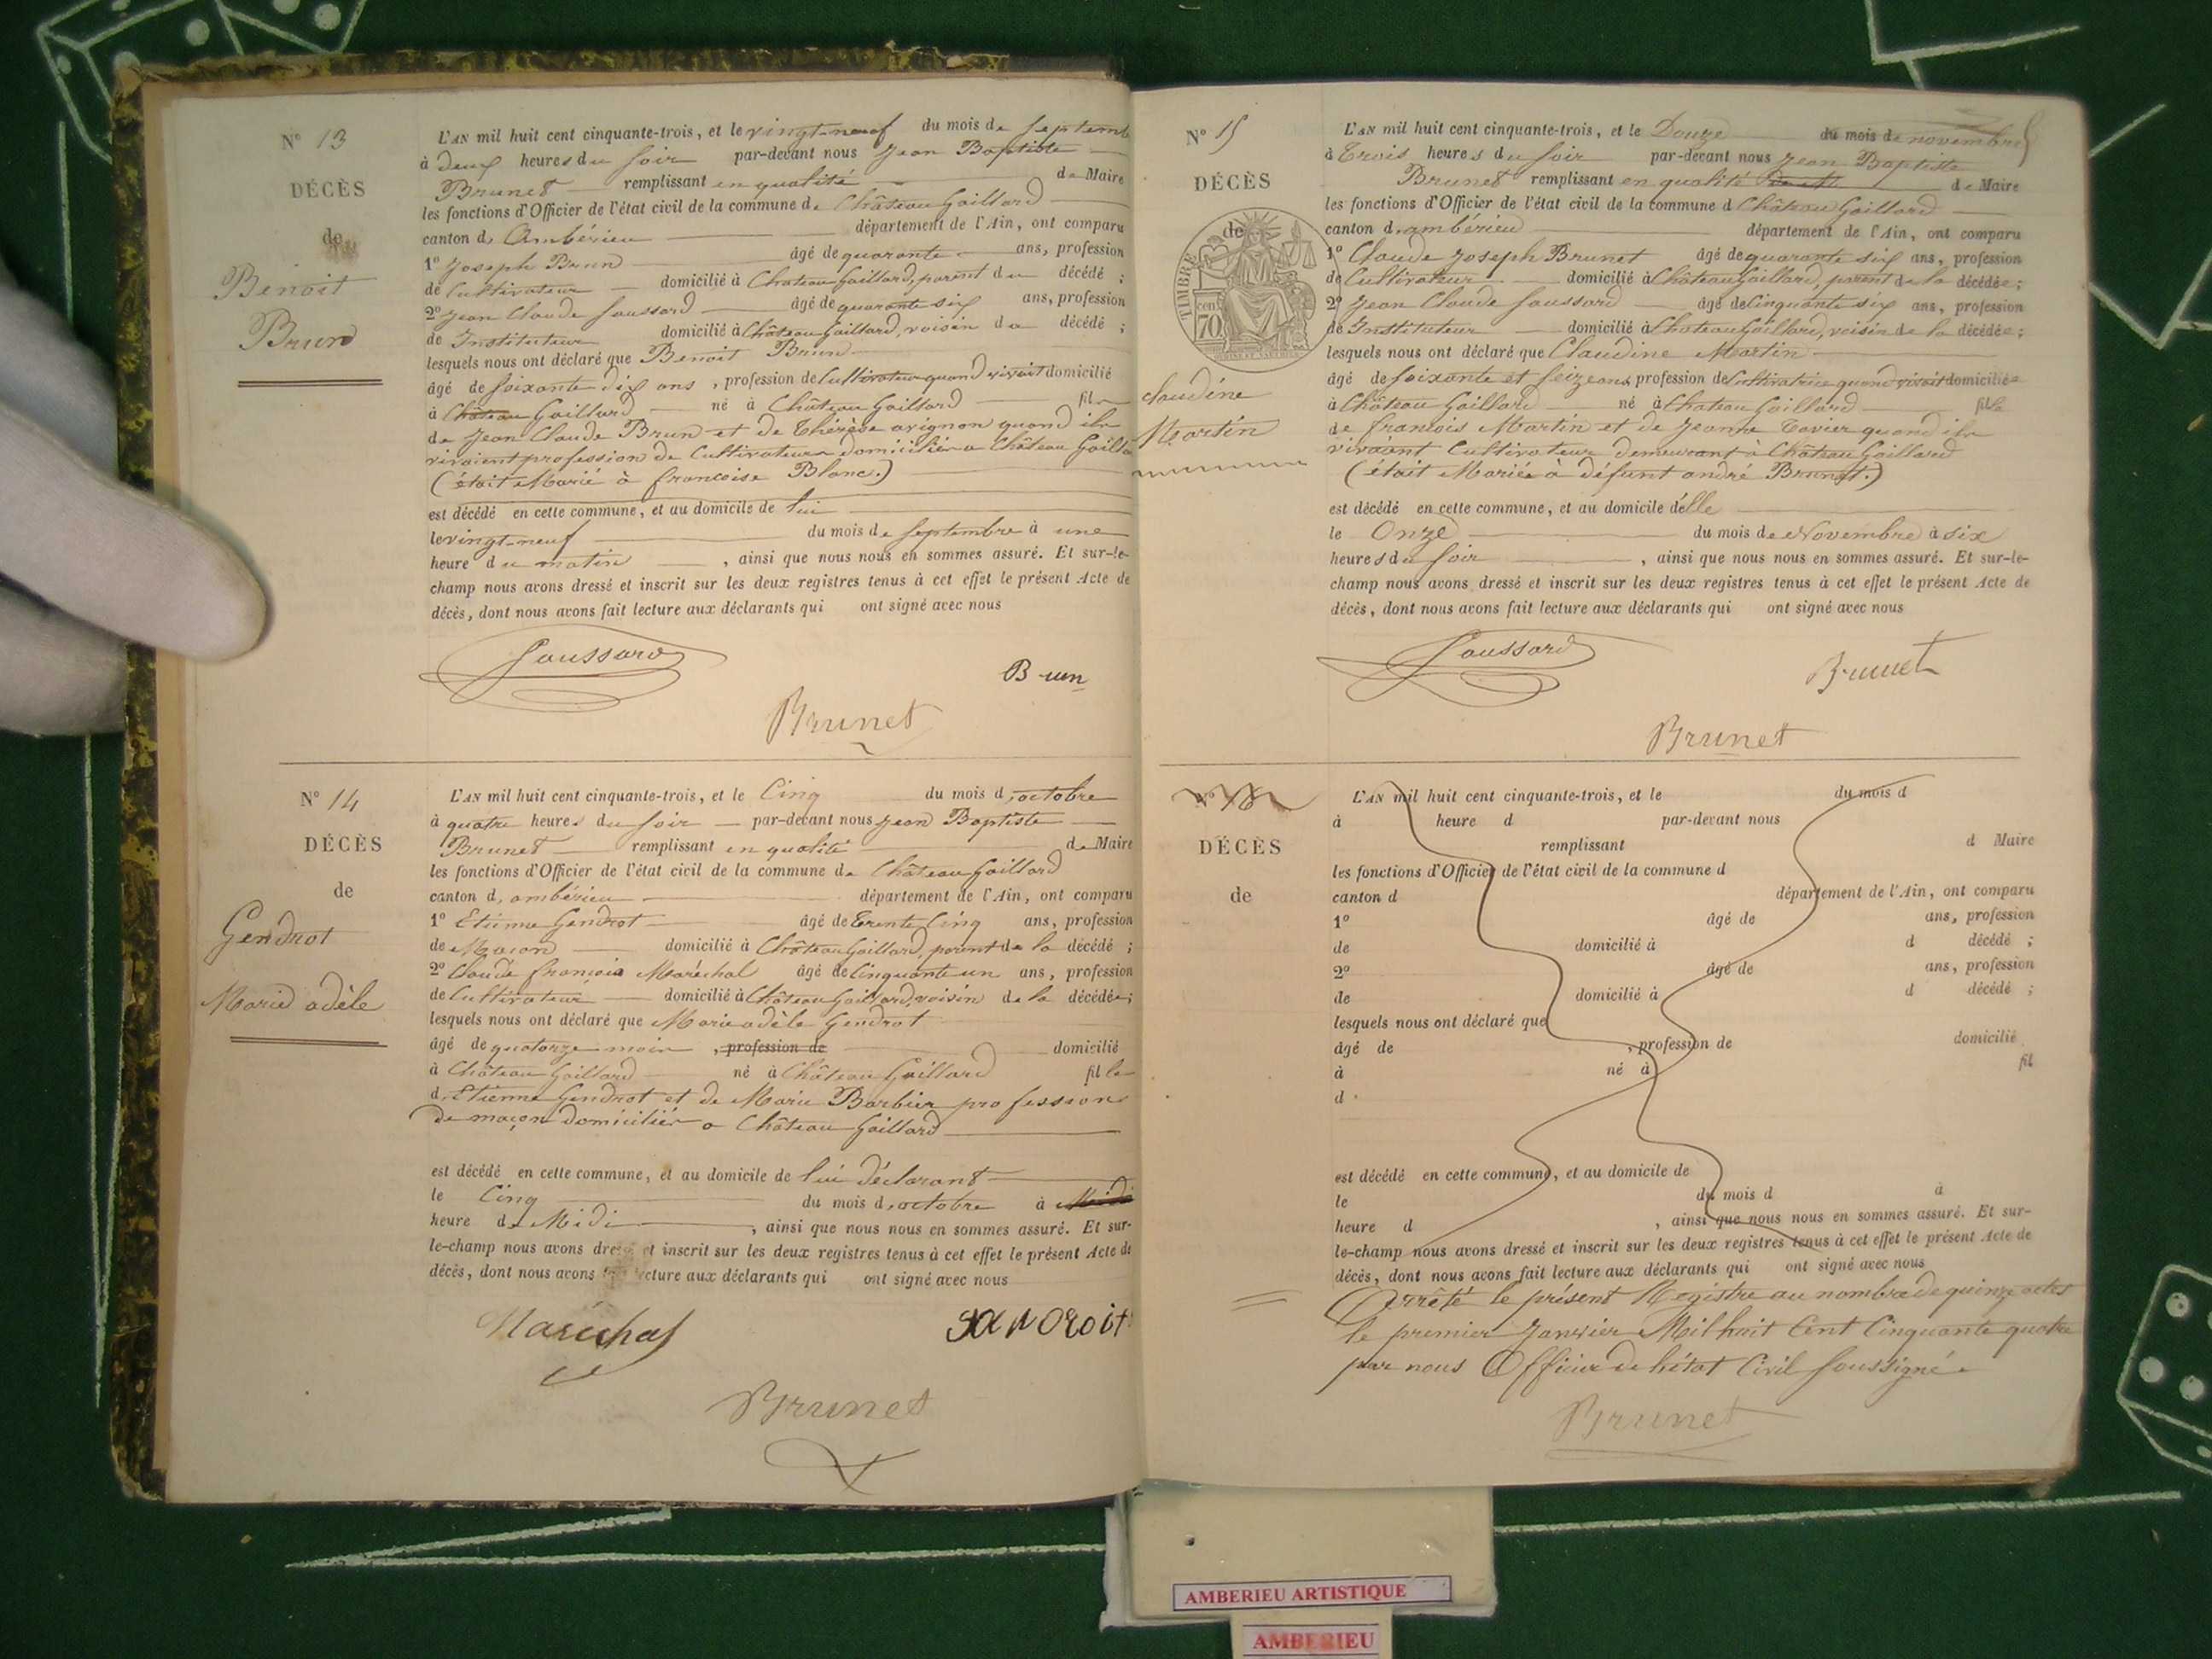 N° 13
DÉCÈS
de
Benoit
Brun
L'AN mil huit cent cinquante-trois, et le vingt-neuf du mois de Septemb
à deux heures du soir par-devant nous Jean Baptiste
Brunet remplissant en qualité de Maire
les fonctions d'Officier de l'état civil de la commune de Château Gaillard
canton d, Ambérieu département de l'Ain, ont comparu
1° Joseph Brun âgé de quarante ans, profession
de Cultivateur domicilié à Château Gaillard, parent du décédé ;
2° Jean Claude Soussard âgé de quarante six ans, profession
de Instituteur domicilié à Château Gaillard, voisin du décédé ;
lesquels nous ont déclaré que Benoit Brun
âgé de soixante dix ans , profession de Cultivateur quand vivait domicilié
à Château Gaillard né à Château Gaillard fils
de Jean Claude Brun et de Thérèse avignon quand ils
vivaient profession de Cultivateurs domiciliés a Château Gailla
(était Marié à françoise Blanc.)
est décédé en cette commune, et au domicile de lui
le vingt-neuf du mois de Septembre à une
heure du matin , ainsi que nous nous en sommes assuré. Et sur-le-
champ nous avons dressé et inscrit sur les deux registres tenus à cet effet le présent Acte de
décès, dont nous avons fait lecture aux déclarants qui ont signé avec nous
Soussard
Brun
Brunet
N° 14
DÉCÈS
de
Gendrot
Marie adèle
L'AN mil huit cent cinquante-trois, et le Cinq du mois d, octobre
à quatre heures du soir par-devant nous Jean Baptiste
Brunet remplissant en qualité de Maire
les fonctions d'Officier de l'état civil de la commune de Château Gaillard
canton d, ambérieu département de l'Ain, ont comparu
1° Etienne Gendrot âgé de Trente Cinq ans, profession
de Maçon domicilié à Château Gaillard, parent de la décédé ;
2° Claude françois Maréchal âgé de Cinquante un ans, profession
de Cultivateur domicilié à Château Gaillard, voisin de la décédée ;
lesquels nous ont déclaré que Marie adèle Gendrot
âgé de quatorze mois , profession de domicilié
à Château Gaillard né à Château Gaillard fille
d, Etienne Gendrot et de Marie Barbier professions
de maçon domiciliés a Château Gaillard
est décédé en cette commune, et au domicile de lui déclarant
le Cinq du mois d, octobre à Midi
heure de Midi , ainsi que nous nous en sommes assuré. Et sur-
le-champ nous avons dressé et inscrit sur les deux registres tenus à cet effet le présent Acte de
décès, dont nous avons fait lecture aux déclarants qui ont signé avec nous
Maréchal
Brunet
N° 15
DÉCÈS
de
TIMBRE
cen
70
claudine
Martin
L'AN mil huit cent cinquante-trois, et le Douze du mois de novembre
à Trois heures du soir par-devant nous Jean Baptiste
Brunet remplissant en qualité de Maire
les fonctions d'Officier de l'état civil de la commune d Château Gaillard
canton d, ambérieu département de l'Ain, ont comparu
1° Claude Joseph Brunet âgé de quarante six ans, profession
de Cultivateur domicilié à Château Gaillard, parent de la décédée ;
2° Jean Claude Soussard âgé de Cinquante six ans, profession
de Instituteur domicilié à Château Gaillard, voisin de la décédée ;
lesquels nous ont déclaré que Claudine Martin
âgé de soixante et seize ans, profession de Cultivatrice quand vivait domiciliée
à Château Gaillard né à Château Gaillard fille
de françois Martin et de Jeanne Tavier quand ils
vivaient Cultivateur demeurant à Château Gaillard
(était Mariée à défunt andré Brunet.)
est décédé en cette commune, et au domicile d'elle
le Onze du mois de Novembre à six
heures du soir , ainsi que nous nous en sommes assuré. Et sur-le-
champ nous avons dressé et inscrit sur les deux registres tenus à cet effet le présent Acte de
décès, dont nous avons fait lecture aux déclarants qui ont signé avec nous
Soussard
Brunet
Brunet
DÉCÈS
de
L'AN mil huit cent cinquante-trois, et le du mois d
à heure d par-devant nous
remplissant d Maire
les fonctions d'Officier de l'état civil de la commune d
canton d département de l'Ain, ont comparu
1° âgé de ans, profession
de domicilié à d décédé ;
2° âgé de ans, profession
de domicilié à d décédé ;
lesquels nous ont déclaré que
âgé de , profession de domicilié
à né à fil
d
est décédé en cette commune, et au domicile de
le du mois d à
heure d , ainsi que nous nous en sommes assuré. Et sur-
le-champ nous avons dressé et inscrit sur les deux registres tenus à cet effet le présent Acte de
décès, dont nous avons fait lecture aux déclarants qui ont signé avec nous
Arrêté le présent Registre au nombre de quinze actes
le premier Janvier Mil huit Cent Cinquante quatre
par nous Officier de l'état Civil soussigné.
Brunet
AMBERIEU ARTISTIQUE
AMBERIEU